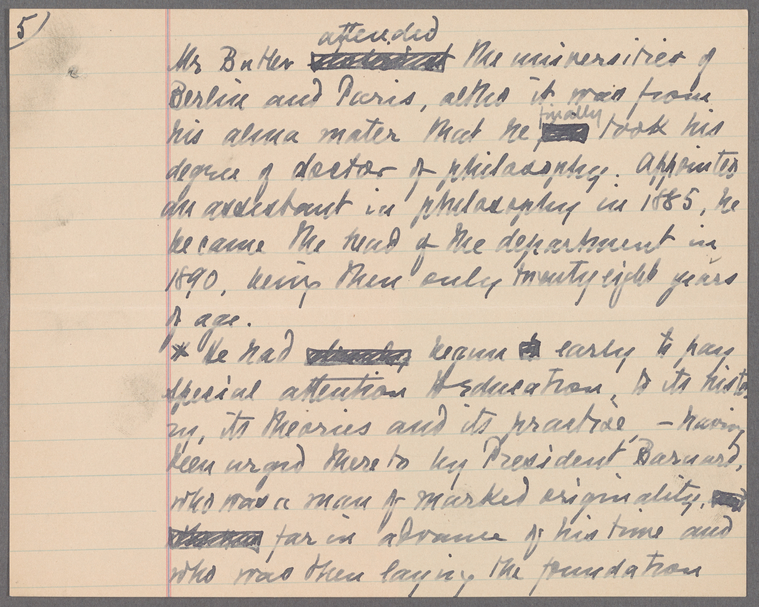 5)
attended
Mr Butler the universities of
Berlin and Paris, altho it was from
finally
his alma mater that he took his
degree of doctor of philosophy. Appointed
an assistant in philosophy in 1885, he
became the head of the department in
1890, being then only twenty eight years
of age.
* He had begun early to pay
special attention to education, to its histo
ry, its theories and its practise, - having
been urged thereto by President Barnard,
who was a man of marked originality,
far in advance of his time and
who was then laying the foundation